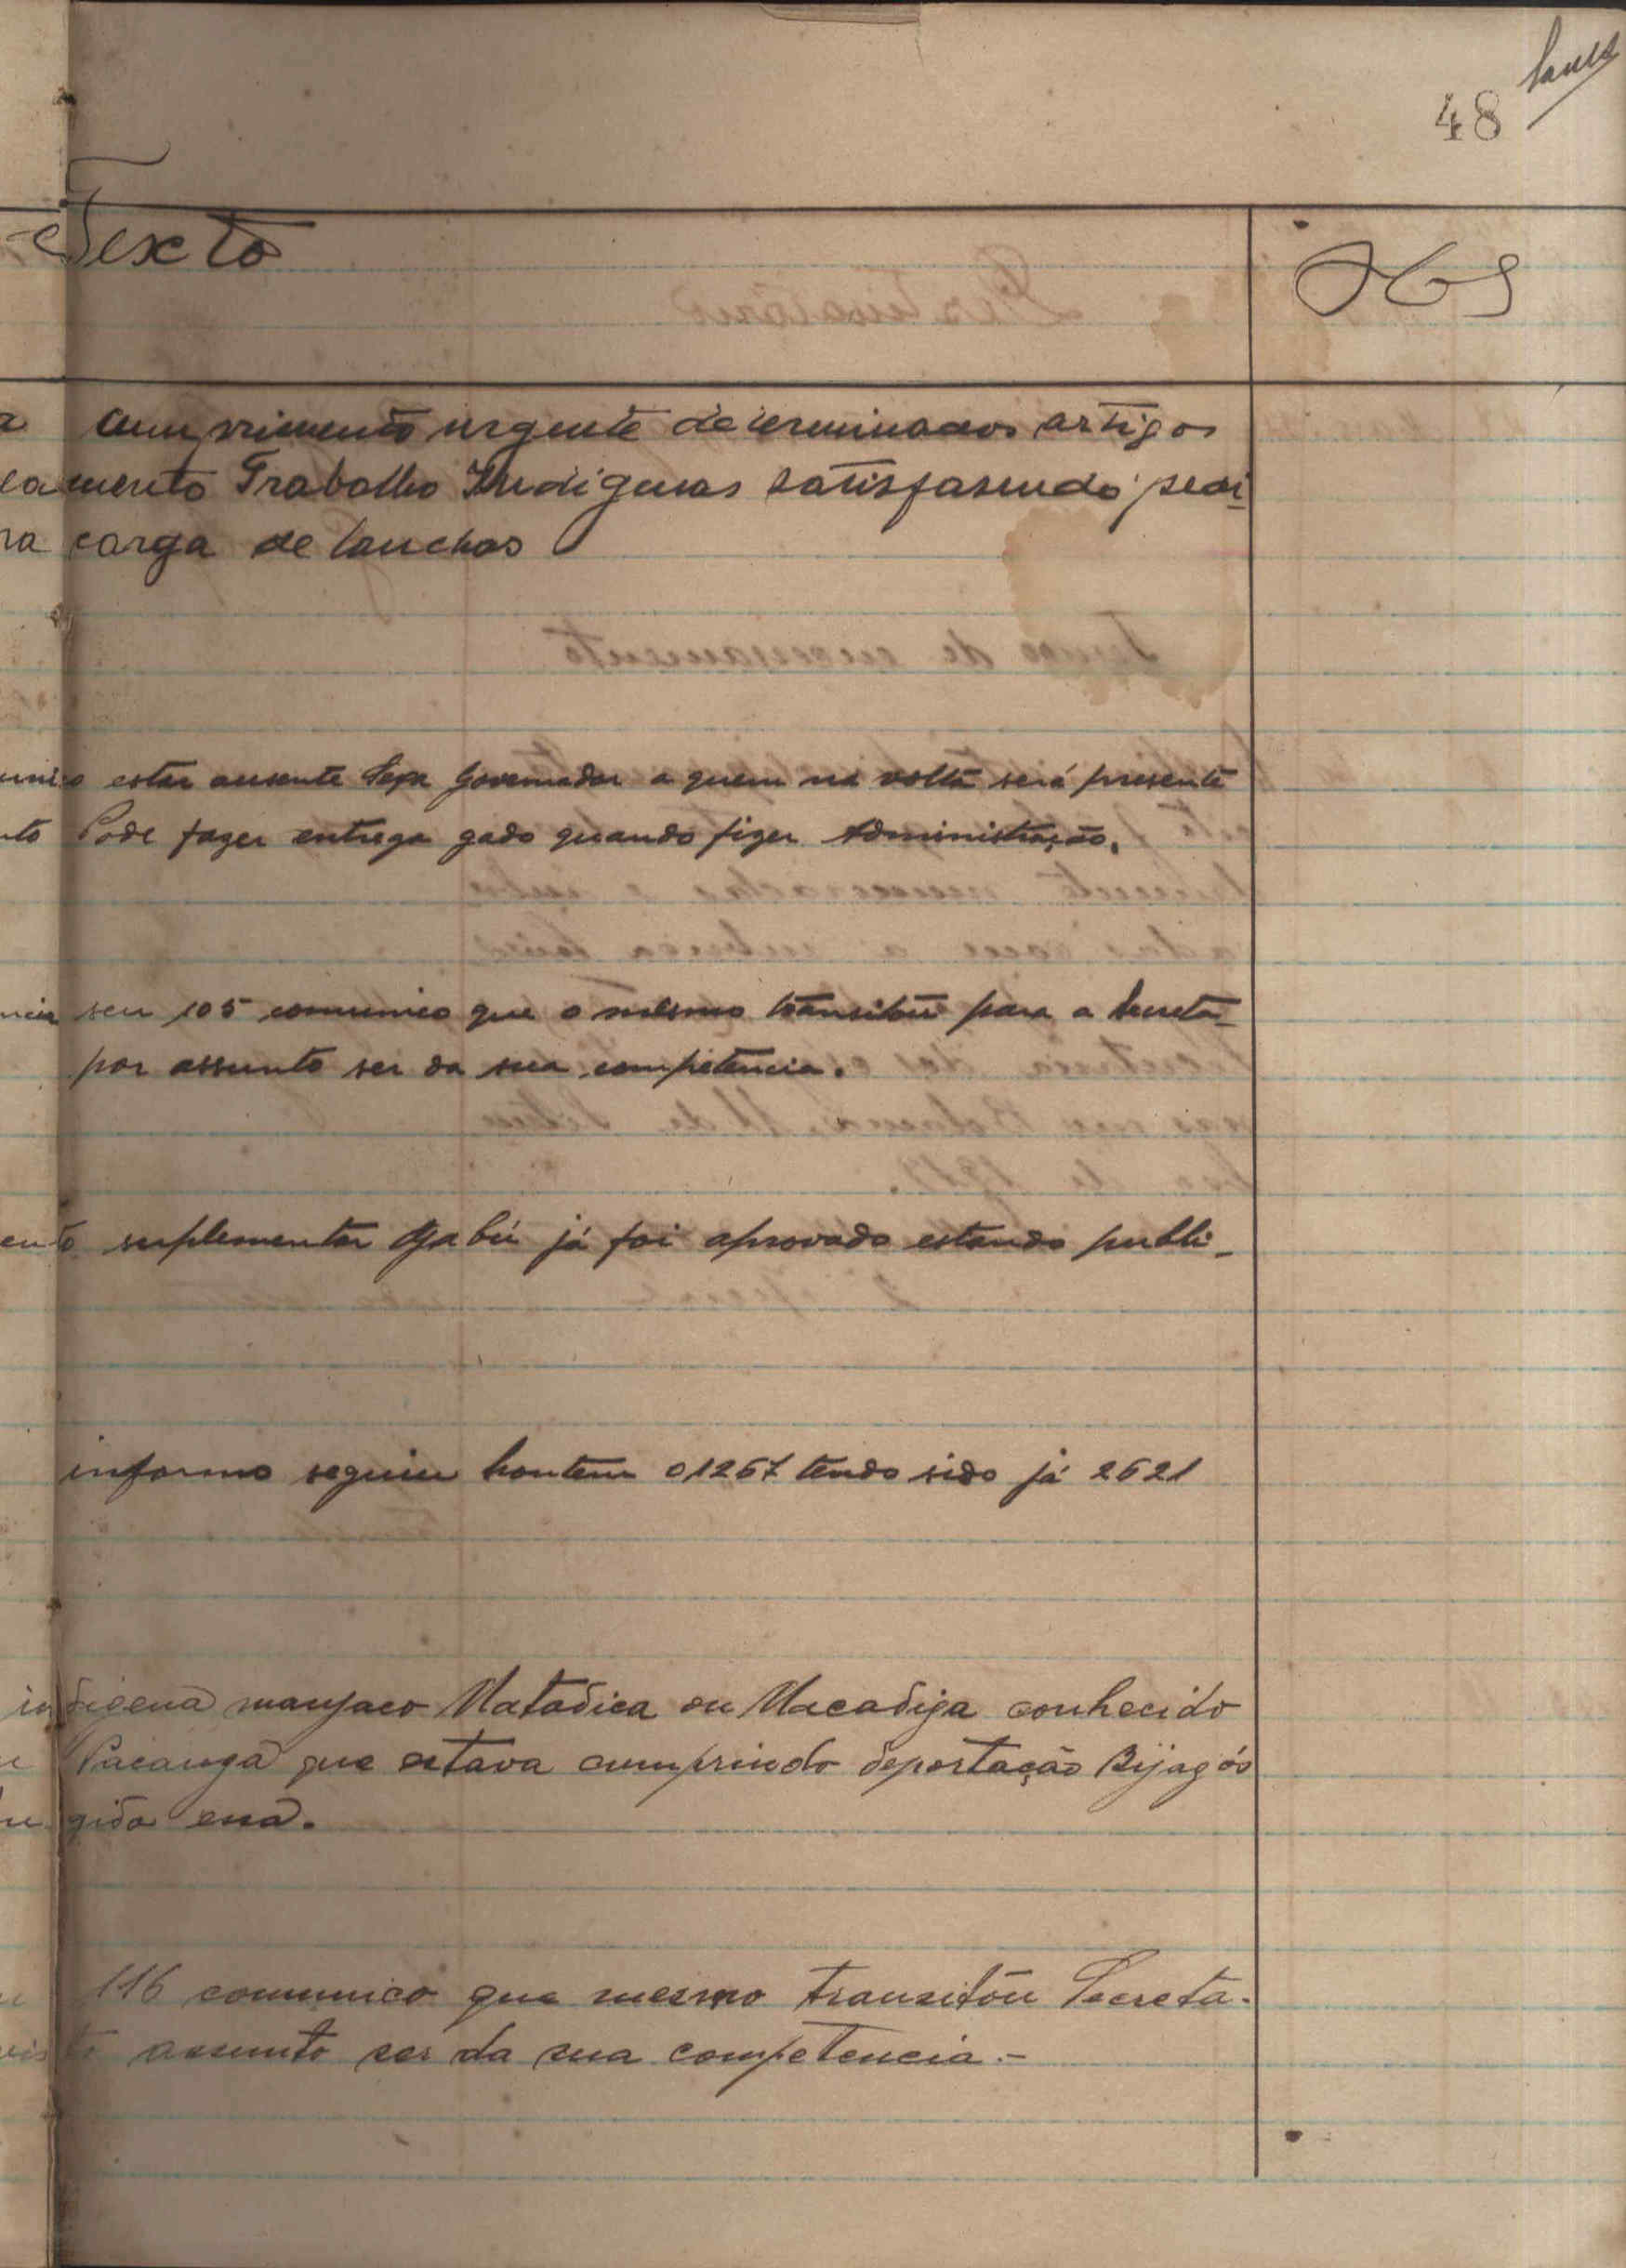 48
Texto
Obs
a cumprimento urgente determinados artigos
lamento Trabalho Indigenas satisfasendo pedi
ra carga de lanchas
unico estar ausente Sexa Governador a quem na volta será presente
nto Pode fazer entrega gado quando fizer Administração.
ncia seu 105 comunico que o mesmo transitou para a Secreta-
por assunto ser da sua competencia.
ento suplementar Gabú já foi aprovado estando publi-
informo seguiu hontem 01267 tendo sido já 2621
indigena manjaco Matadica ou Macadiga conhecido
Pacanga que estava cumprindo deportação Bijagós
gido essa.
116 comunico que mesmo transitou Secreta-
assunto ser da sua competencia.-